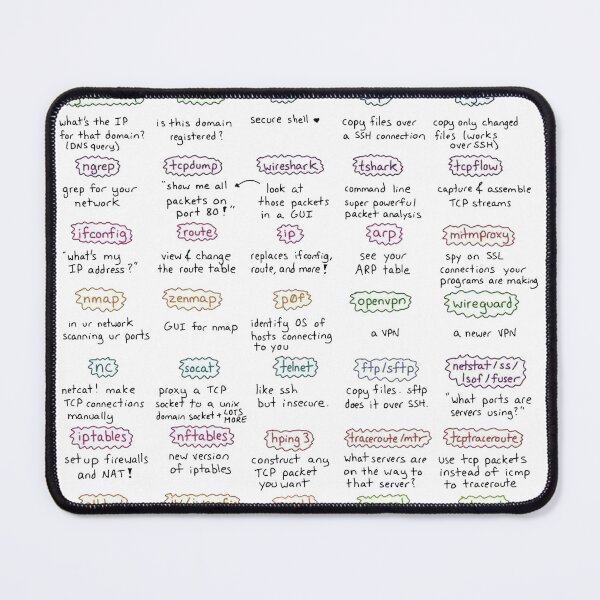 what's the IP
for that domain?
(DNS query)
is this domain
registered?
secure shell ♥
copy files over
a SSH connection
copy only changed
files (works
over SSH)
ngrep
grep for your
network
tcpdump
"show me all
packets on
port 80!"
wireshark
look at
those packets
in a GUI
tshark
command line
super powerful
packet analysis
tcpflow
capture & assemble
TCP streams
ifconfig
"what's my
IP address?"
route
view & change
the route table
ip
replaces ifconfig,
route, and more!
arp
see your
ARP table
mitmproxy
spy on SSL
connections your
programs are making
nmap
in ur network
scanning ur ports
zenmap
GUI for nmap
p0f
identify OS of
hosts connecting
to you
openvpn
a VPN
wireguard
a newer VPN
nc
netcat! make
TCP connections
manually
socat
proxy a TCP
socket to a unix
domain socket + LOTS
MORE
telnet
like ssh
but insecure.
ftp/sftp
copy files. sftp
does it over SSH.
netstat/ss/
lsof/fuser
"what ports are
servers using?"
iptables
set up firewalls
and NAT!
nftables
new version
of iptables
hping3
construct any
TCP packet
you want
traceroute/mtr
what servers are
on the way to
that server?
tcptraceroute
use tcp packets
instead of icmp
to traceroute